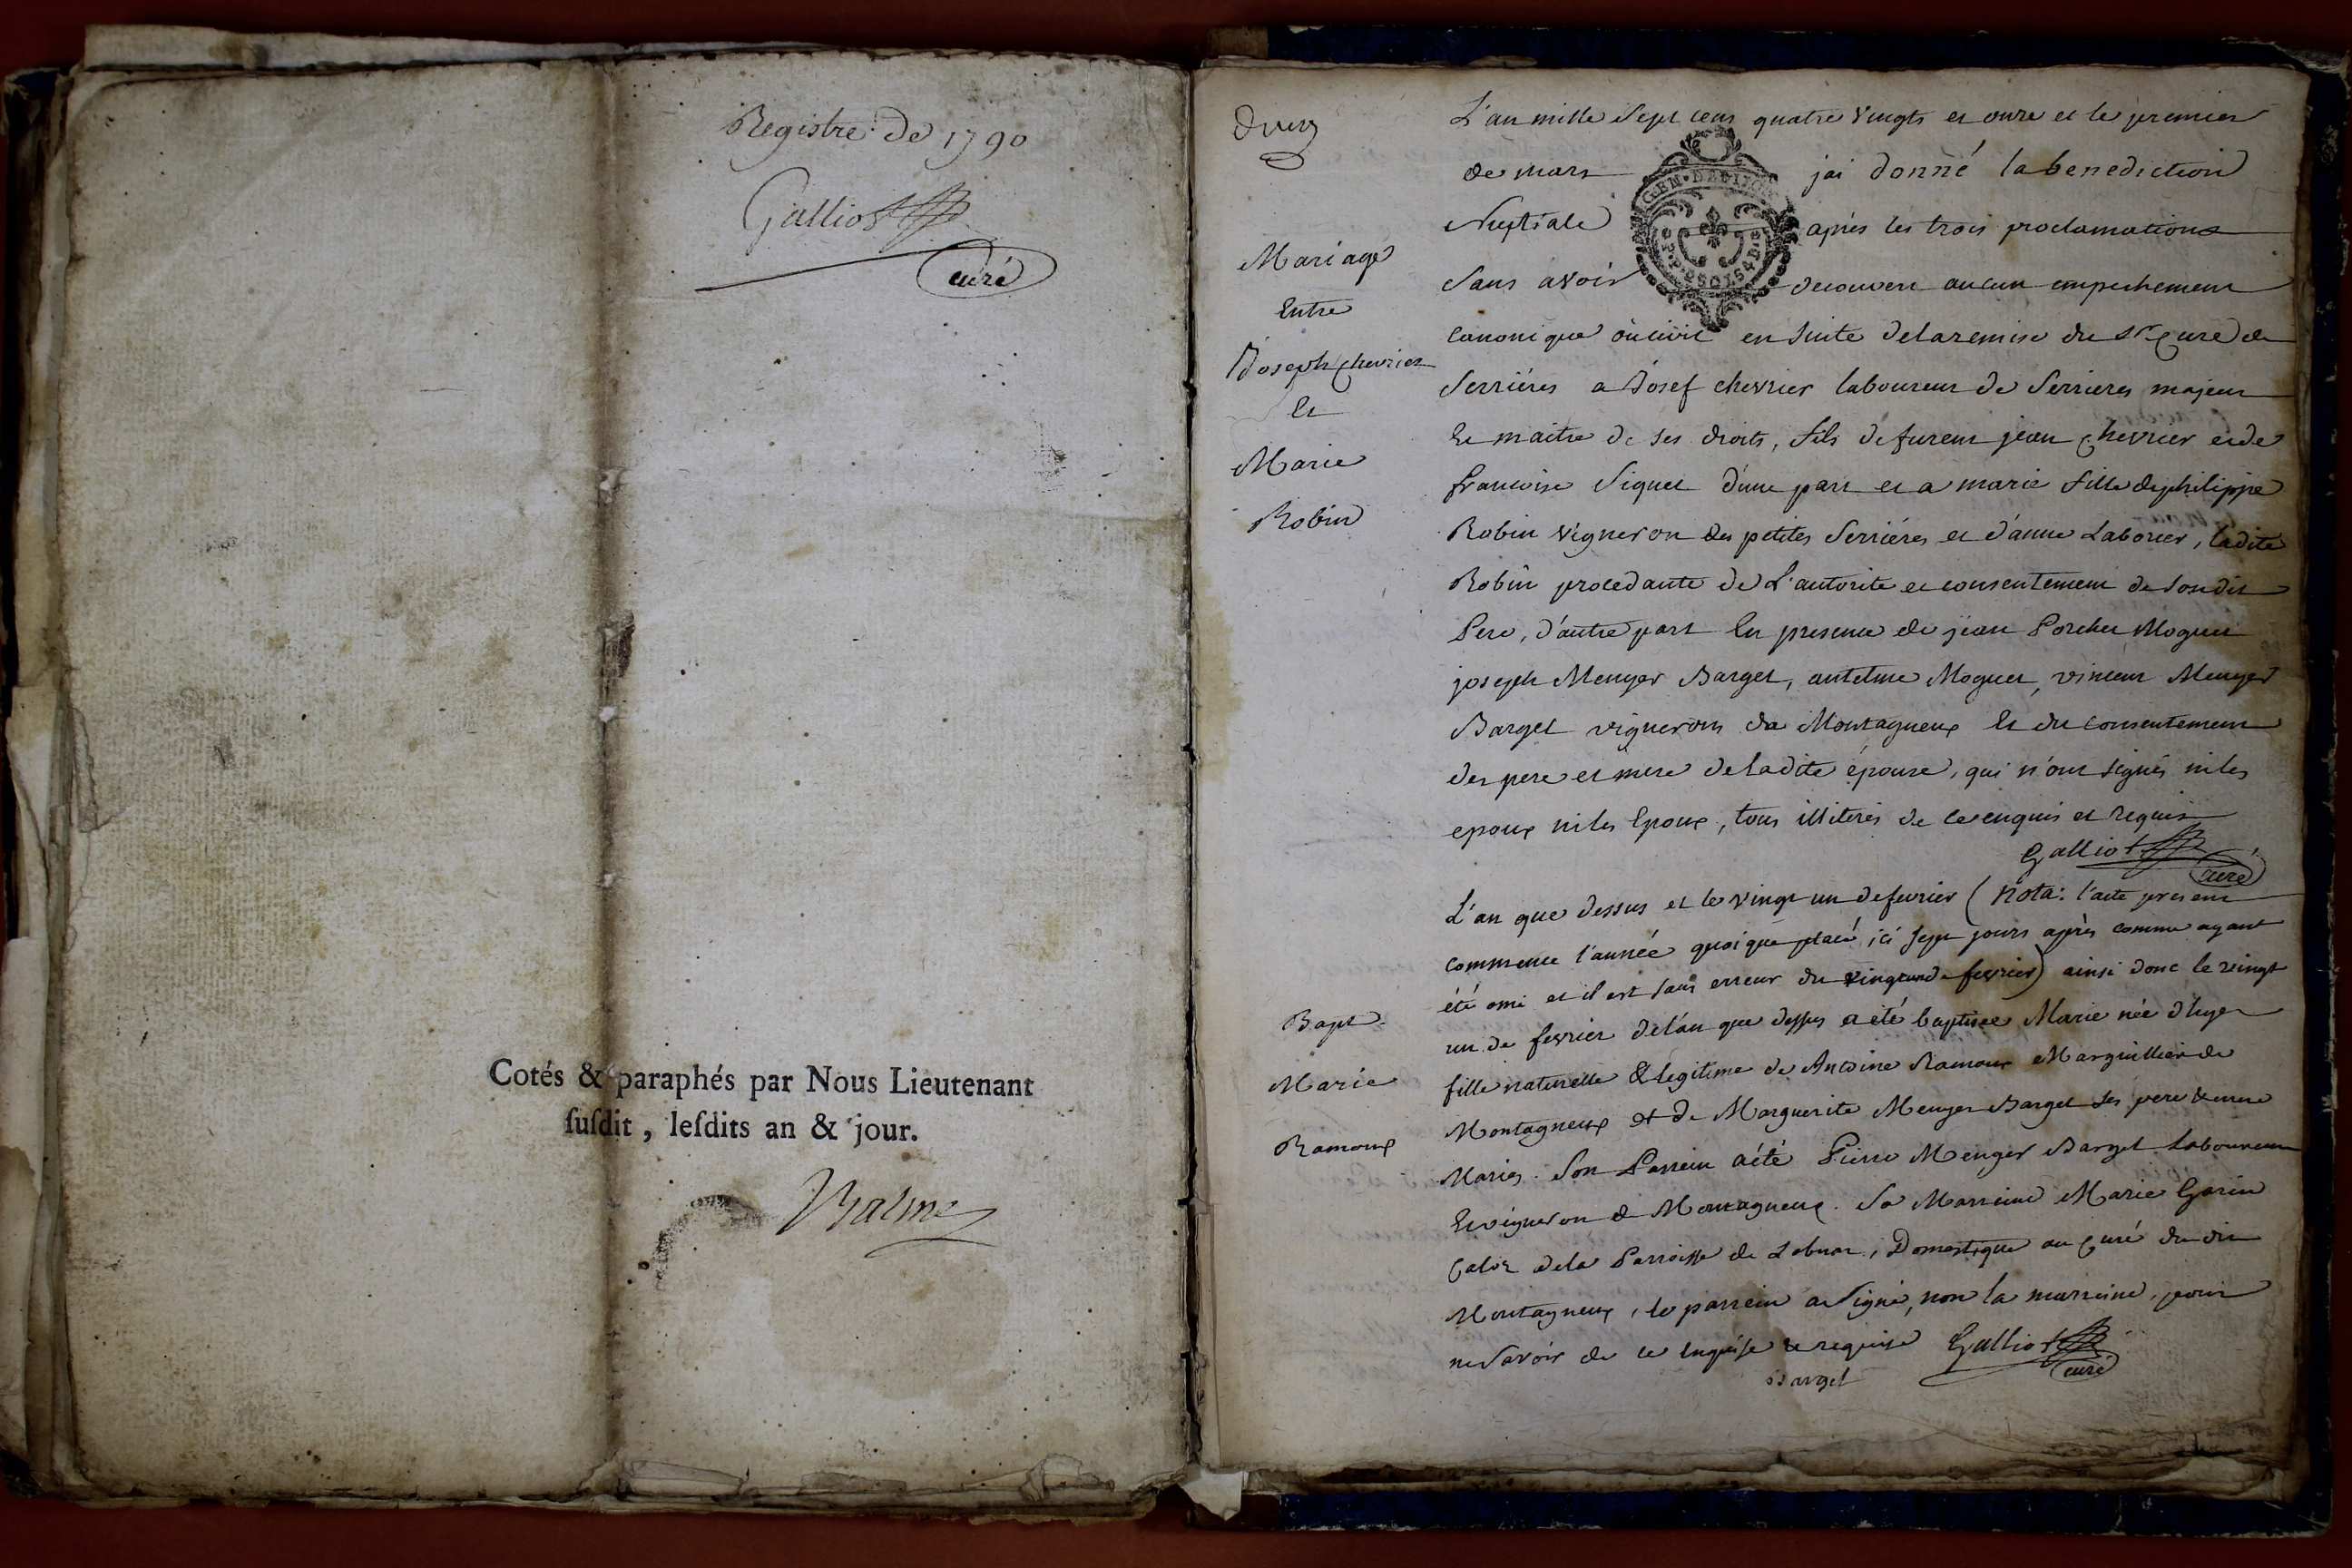 Registre de 1790
Galliot
curé
Cotés & paraphés par Nous Lieutenant
suſdit, leſdits an & jour.
Balme
Mariage
Entre
Joseph chevrier
Et
Marie
Robin
L'an mille Sept cens quatre vingts et onze et le premier
de mars jai donné la benediction
Nuptiale après les trois proclamations
Sans avoir decouvert aucun empechement
canonique ou civil en suite de la remise du Sr Curé de
Serriéres a Josef chevrier laboureur de Serrieres majeur
Et maitre de ses droits, fils de furent jean chevrier et de
francoise Siguet d'une part et a marie fille de philippe
Robin vigneron des petites Serriéres et d'anne Laborier, ladite
Robin procedante de L'autorite et consentement de sondit
Pere, d'autre part En presence de jean Porcher Moguet
joseph Menger Barget, antelme Moguet, vincent Menger
Barget vignerons de Montagneux Et du consentement
des pere et mere de ladite épouse, qui n'ont signés ni les
epoux ni les Epoux, tous illiterés de ce enquis et requis
Galliot
curé
Bapt.
Marie
Ramoux
L'an que dessus et le vingt un de fevrier (nota: l'acte present
commence l'année quoique placé ici sept jours après comme ayant
été omi et il est sans erreur du vingt un de fevrier) ainsi donc le vingt
un de fevrier de l'an que dessus a été baptisee Marie née d'hyer
fille naturelle & legitime de Antoine Ramoux Marguillier de
Montagneux et de Marguerite Menger Barget ses pere & mere
Mariés. Son Parrein a été Pierre Menger Barget Laboureur
Et vigneron de Montagneux. Sa Marreine Marie Garin
de la Parroisse de Domestique au Curé du dit
Montagneux, le parrein a Signé, non la marreine, pour
ne Savoir de ce Enquise & requise Galliot
curé
Barget